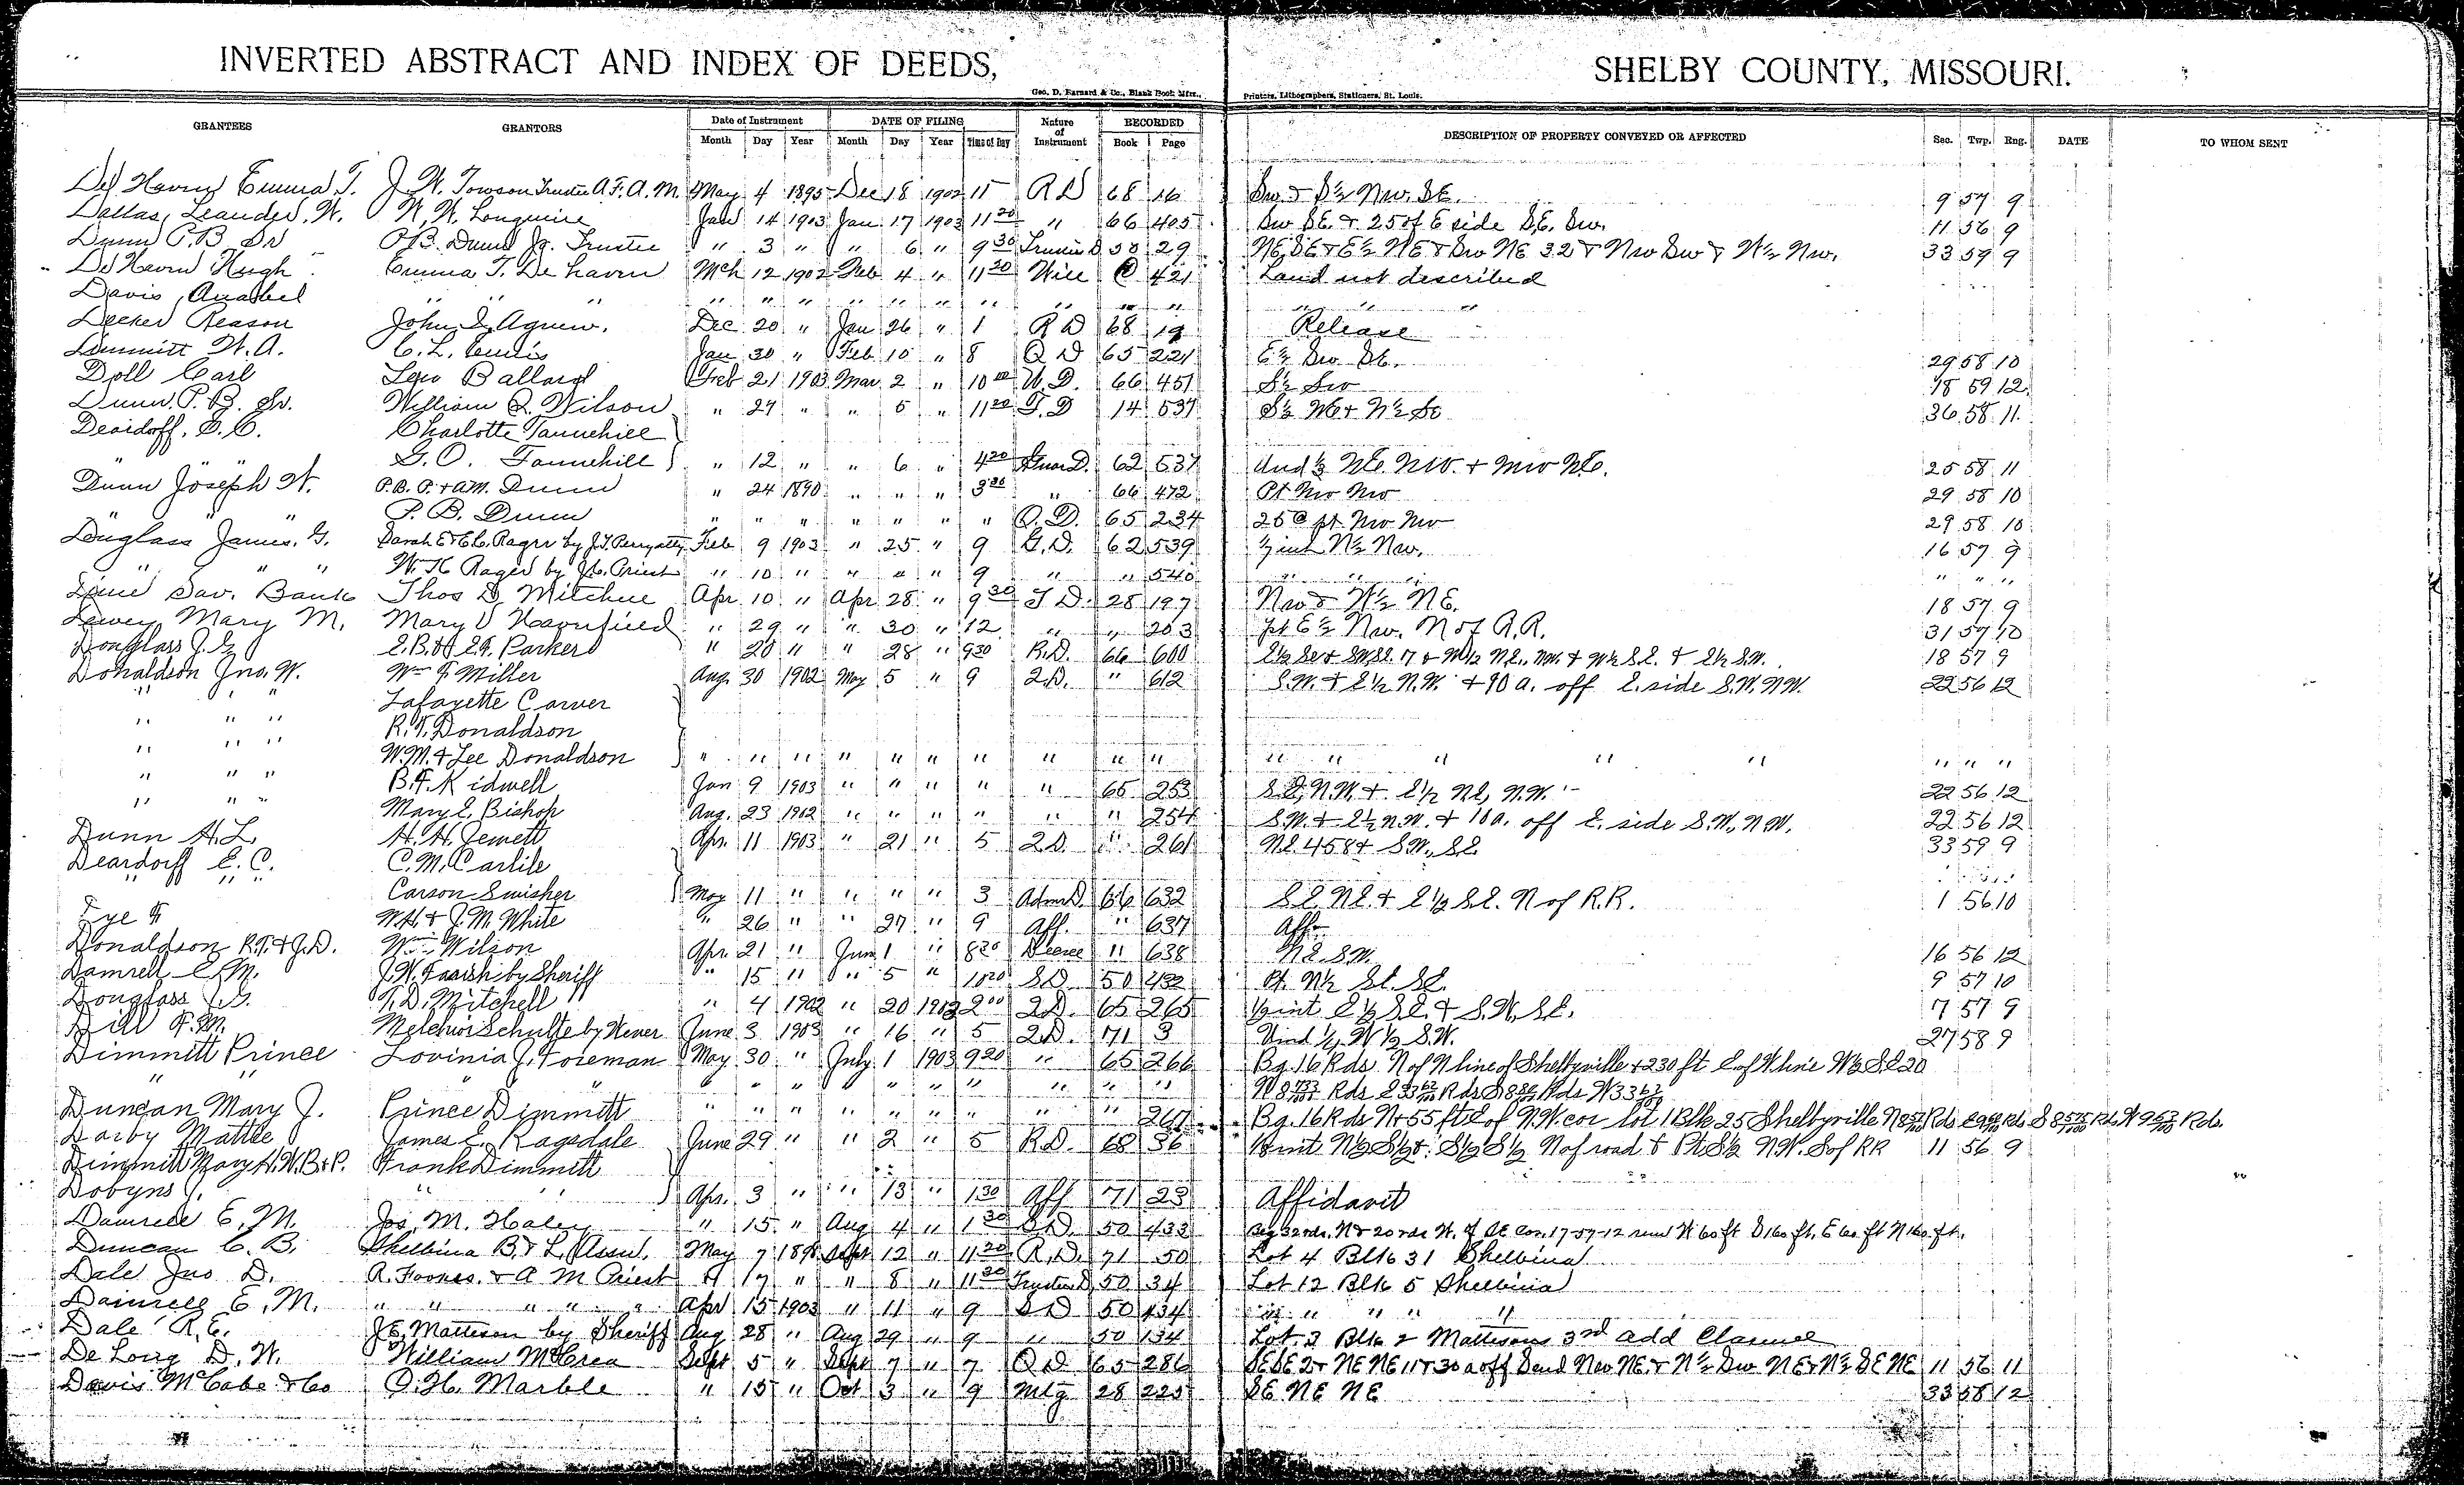 INVERTED ABSTRACT AND INDEX OF DEEDS, SHELBY COUNTY, MISSOURI.
Geo. D. Barnard & Co., Blank Book Mfrs., Printers, Lithographers, Stationers, St. Louis.
GRANTEES GRANTORS Date of Instrument DATE OF FILING Nature of Instrument RECORDED DESCRIPTION OF PROPERTY CONVEYED OR AFFECTED Sec. Twp. Rng. DATE TO WHOM SENT
Month Day Year Month Day Year Time of Day Book Page
De Haven Emma T. J. W. Towson Trustee A.F.A.M. May 4 1895 Dec 18 1902 11 R D 68 16 Sw & S½ Nw. SE. 9 57 9
Dallas, Leander W. W. W. Longmire Jan 14 1903 Jan 17 1903 11 20 " 66 405 Sw SE. & 25 of E side SE. Sw. 11 56 9
Dunn P.B Sr P.B. Dunn Jr. Trustee " 3 " " 6 " 9 30 Trustee D 50 29 NE, SE & E½ NE & Sw NE 32 & Nw Sw & W½ Nw. 33 59 9
De Haven Hugh Emma T. De haven Mch 12 1902 Feb 4 " 11 30 Will 421 Land not described
Davis, Anabel " " " " " " " " " " " " " " "
Decker Reason John Agnew. Dec 20 " Jan 26 " 1 R D 68 19 Release
Dimmitt W. A. C. L. Jan 30 " Feb 10 " 8 Q D 65 221 E½ Sw SE. 29 58 10
Doll Carl Leo Ballard Feb 21 1903 Mar. 2 " 10 W. D. 66 451 S½ Sw 18 59 12
Dunn, P. B. Sr. William Q. Wilson " 24 " " 5 " 11 20 T. D 14 537 S½ Ne & N½ Se 36 58 11
Deardoff, E. C. Charlotte Tannehill
" " G. O. Tannehill " 12 " " 6 " 4 20 Guar D. 62 537 Und ⅓ Ne. Nw. + Nw Ne. 25 58 11
Dunn Joseph W. P. B. P. & A.M. Dunn " 24 1890 " " " 3 " 66 472 Pt Nw Nw 29 58 10
" " P. B. Dunn " " " " " " " Q. D. 65 234 25 @ pt. Nw Nw 29 58 10
Duglass James. G. Sarah E & C. C. Rager by J.T. Perry atty Feb 9 1903 " 25 " 9 G. D. 62 539 ½ int N½ Nw. 16 57 9
" " " W. H. Rager by Jo. Priest " 10 " " " " 9 " " 540 " " " " "
Dime Sav. Bank Thos D. Mitchell Apr. 10 " Apr 28 " 9 30 T D. 28 197 Nw & W½ NE. 18 57 9
Dewey Mary M. Mary " 29 " " 30 " 12 " " 203 pt E½ Nw. N of R.R. 31 57 10
Douglass J. G. E. B. & E.G. Parker " 20 " " 28 " 9 30 R.D. 66 600 E½ Se & SWSE. 17 & W½ NE., NW. & W½ SE. & E½ S.W. 18 57 9
Donaldson Jno. W. Wm F Miller Aug. 30 1902 May 5 " 9 2 D. " 612 S.W. & E½ N.W. & 90 a. off E. side S.W. NW. 22 56 12
" " " Lafayette Carver
" " " R. T. Donaldson
" " " W.M. & Lee Donaldson " " " " " " " " " " " " " " " " " "
" " " B.F. Kidwell Jan 9 1903 " " " " " 65 253 S.E. N.W. & E½ NE, N.W. 22 56 12
" " " Mary E. Bishop Aug. 23 1902 " " " " " " 254 S.W. & E½ N.W. & 10 a. off E. side S.W., N.W. 22 56 12
Dunn H. L. H. H. Jewett Apr. 11 1903 " 21 " 5 2 D. " 261 NE. 4 58 & S.W., S.E. 33 59 9
Deardorff E. C. C. M. Carlile
" " " Carson Swisher May 11 " " " " 3 Adm.D. 66 632 S.E. N.E. & E½ S.E. N of R.R. 1 56 10
Dye F W.H. & J. M. White " 26 " " 27 " 9 Aff. " 637 Aff.
Donaldson R.T. & J.D. Wm Wilson Apr. 21 " Jun. 1 " 8 20 Decree " 638 N.E. S.W. 16 56 12
Damrell E. M. J. W. Farish by Sheriff " 15 " " 5 " 10 20 S.D. 50 432 Pt. N½ SE. SE. 9 57 10
Douglass J. G. T. D. Mitchell " 4 1902 " 20 1903 2 00 2 D. 65 265 ½ int. E½ S.E. & S.W. S.E. 17 57 9
Dill F. M. Melchior Schulte by Wever June 3 1903 " 16 " 5 2 D. 71 3 Und ¼ W½ S.W. 27 58 9
Dimmitt Prince Lovinia J. Foreman May 30 " July 1 1903 9 20 " 65 266 Bg. 16 Rds N of N line of Shelbyville & 230 ft E of W line W½ S.E. 20
" " " " " " " " " " " " "
Duncan Mary J. Prince Dimmitt " " " " " " " " " 267 Bg. 16 Rds N & 55 ft E of N.W. cor lot 1 Blk 25 Shelbyville
Darby Mattie James E. Ragsdale June 29 " " 2 " 5 R.D. 68 36 ½ int N½ S½ & S½ S½ N of road & Pt S½ N.W. S of RR 11 56 9
Dimmitt Mary H. W. B & P. Frank Dimmitt
Dobyns J. " " Apr. 3 " " 13 " 1 30 Aff 71 23 Affidavit
Damrell E. M. Jos. M. Haley " 15. " Aug 4 " 1 30 S.D. 50 433 Beg 32 rds. N & 20 rds W. of SE Cor. 17-57-12 run W 60 ft S 160 ft. E 60 ft N 160 ft.
Duncan C. B. Shelbina B. & L. Assn. May 7 189 Sept 12 " 11 20 R. D. 71 50 Lot 4 Blk 31 Shelbina
Dale Jno D. R. & A M Priest " 17 " " 8 " 11 20 Trustee D 50 34 Lot 12 Blk 5 Shelbina
Damrell E. M. " " " " " Apr 15 1903 " 11 " 9 S D 50 434 " " " " "
Dale R. E. J.E. Mattison by Sheriff Aug 28 " Aug 29 " 9 " 50 134 Lot. 3 Blk 2 Mattisons 3rd add Clarence
De Long D. W. William McCrea Sept 5 " Sept 7 " 7 Q D 65 286 SE SE 2 & NE NE 11 & 30 a off S end Nw NE. & N½ Sw NE & N½ SE NE 11 56 11
Davis McCabe & Co O. H. Marble " 15 " Oct 3 " 9 Mtg 28 225 SE NE NE 33 58 12